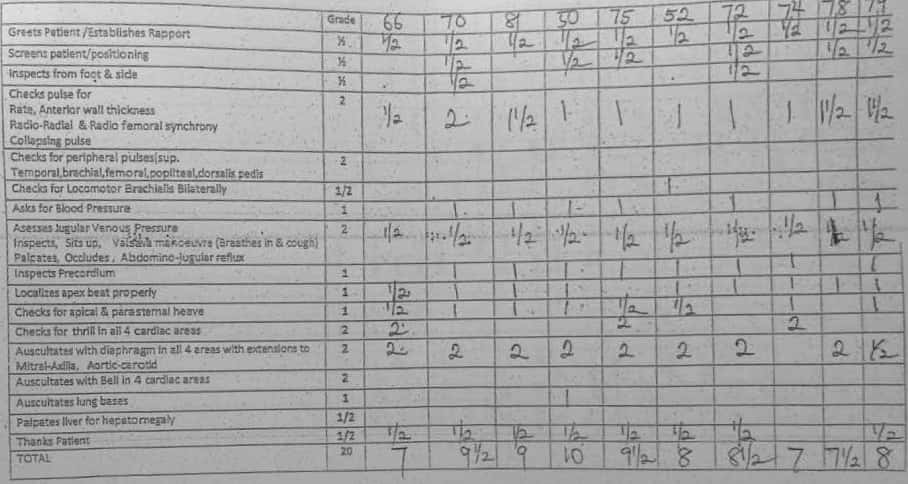 Grade 66 70 81 50 75 52 72 74 78 79
Greets Patient /Establishes Rapport ½ 1/2 1/2 1/2 1/2 1/2 1/2 1/2 1/2 1/2 1/2
Screens patient/positioning ½ 1/2 1/2 1/2 1/2 1/2 1/2
Inspects from foot & side ½ 1/2 1/2
Checks pulse for 2 1/2 2 1 1/2 1 1 1 1 1 1 1/2 1 1/2
Rate, Anterior wall thickness
Radio-Radial & Radio femoral synchrony
Collapsing pulse
Checks for peripheral pulses(sup. 2
Temporal,brachial,femoral,popliteal,dorsalis pedis
Checks for Locomotor Brachialis Bilaterally 1/2 1
Asks for Blood Pressure 1 1 1 1 1 1 1
Asesses Jugular Venous Pressure 2 1/2 1/2 1/2 1/2 1/2 1/2 1/2 1/2 1/2
Inspects, Sits up, Valsava manoeuvre (Breathes in & cough)
Palpates, Occludes, Abdomino-jugular reflux
Inspects Precordium 1 1 1 1 1 1 1 1
Localizes apex beat properly 1 1/2 1 1 1 1 1 1 1 1
Checks for apical & parasternal heave 1 1/2 1 1 1 1/2 1/2 1 1
Checks for thrill in all 4 cardiac areas 2 2 2 2
Auscultates with diaphragm in all 4 areas with extensions to 2 2 2 2 2 2 2 2 2 1/2
Mitral-Axilla, Aortic-carotid
Auscultates with Bell in 4 cardiac areas 2
Auscultates lung bases 1 1
Palpates liver for hepatomegaly 1/2
Thanks Patient 1/2 1/2 1/2 1/2 1/2 1/2 1/2 1/2 1/2
TOTAL 20 7 9 1/2 9 10 9 1/2 8 8 1/2 7 7 1/2 8